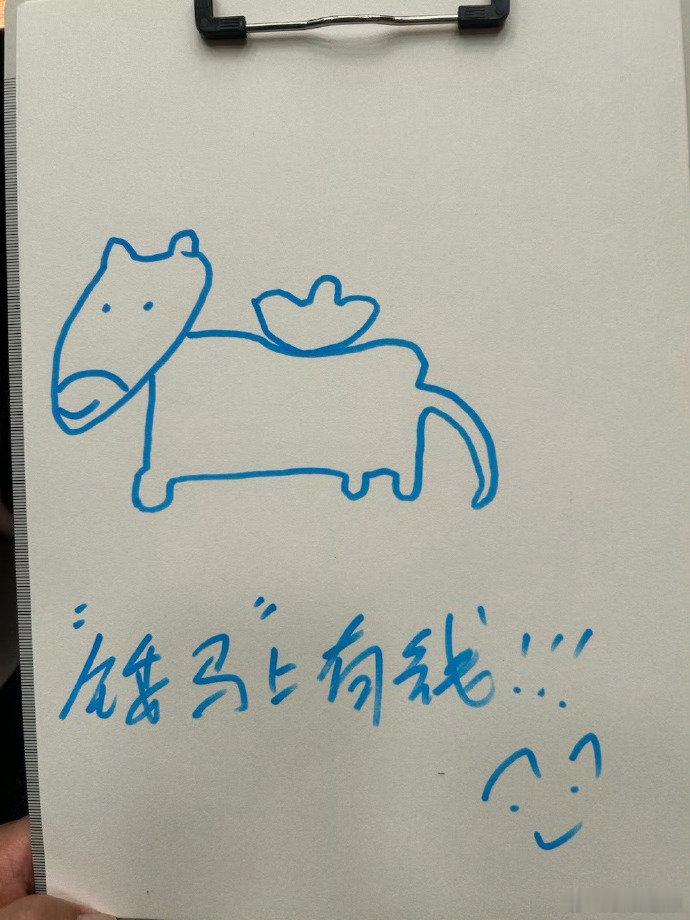 “矮马”上有钱!!!